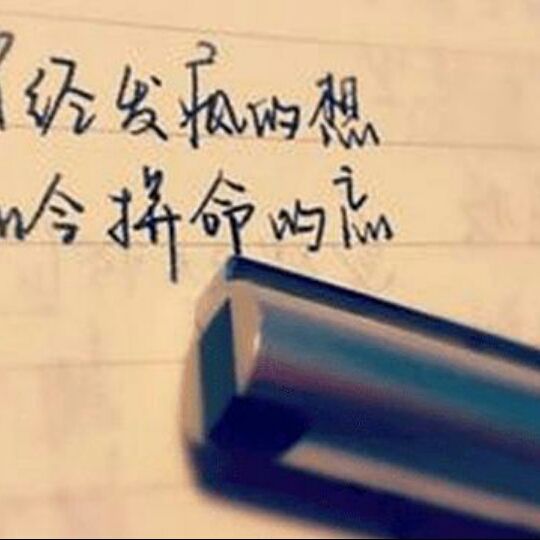 经发疯的想
今拼命的忘